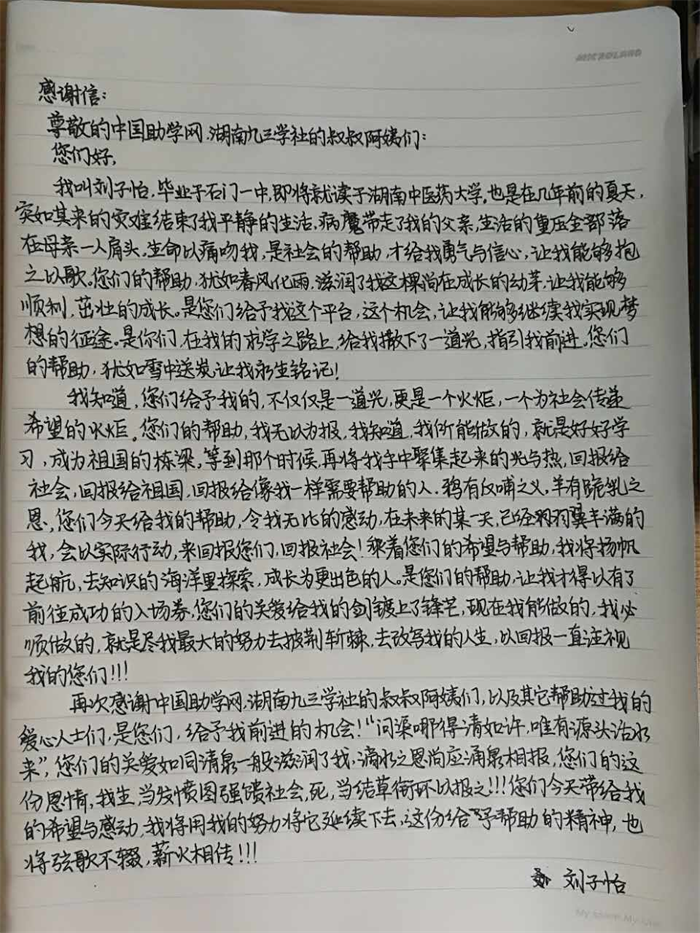 MICROLAND
感谢信：
尊敬的中国助学网、湖南九三学社的叔叔阿姨们：
您们好，
我叫刘子怡，毕业于石门一中，即将就读于湖南中医药大学，也是在几年前的夏天，
突如其来的灾难结束了我平静的生活。病魔带走了我的父亲，生活的重压全部落
在母亲一人肩头，生命以痛吻我，是社会的帮助，才给我勇气与信心，让我能够抱
之以歌。您们的帮助，犹如春风化雨，滋润了我这棵尚在成长的幼芽，让我能够
顺利，茁壮的成长。是您们给予我这个平台，这个机会，让我能够继续我实现梦
想的征途。是你们，在我的求学之路上，给我撒下了一道光，指引我前进。您们
的帮助，犹如雪中送炭，让我永生铭记！
我知道，您们给予我的，不仅仅是一道光，更是一个火炬，一个为社会传递
希望的火炬。您们的帮助，我无以为报，我知道，我所能做的，就是好好学
习，成为祖国的栋梁。等到那个时候，再将我手中聚集起来的光与热，回报给
社会，回报给祖国，回报给像我一样需要帮助的人。鸦有反哺之义，羊有跪乳之
恩，您们今天给我的帮助，令我无比的感动，在未来的某一天，已经羽翼丰满的
我，会以实际行动，来回报您们，回报社会！乘着您们的希望与帮助，我将扬帆
起航，去知识的海洋里探索，成长为更出色的人。是您们的帮助，让我才得以有了
前往成功的入场券，您们的关爱给我的剑镀上了锋芒，现在我能做的，我必
须做的，就是尽我最大的努力去披荆斩棘，去改写我的人生，以回报一直注视
我的您们！！！
再次感谢中国助学网、湖南九三学社的叔叔阿姨们，以及其它帮助过我的
爱心人士们，是您们，给予我前进的机会！“问渠哪得清如许，唯有源头活水
来”，您们的关爱如同清泉一般滋润了我，滴水之恩尚应涌泉相报，您们的这
份恩情，我生，当发愤图强馈社会，死，当结草衔环以报之！！！您们今天带给我
的希望与感动，我将用我的努力将它延续下去，这份给予帮助的精神，也
将弦歌不辍，薪火相传！！！
刘子怡